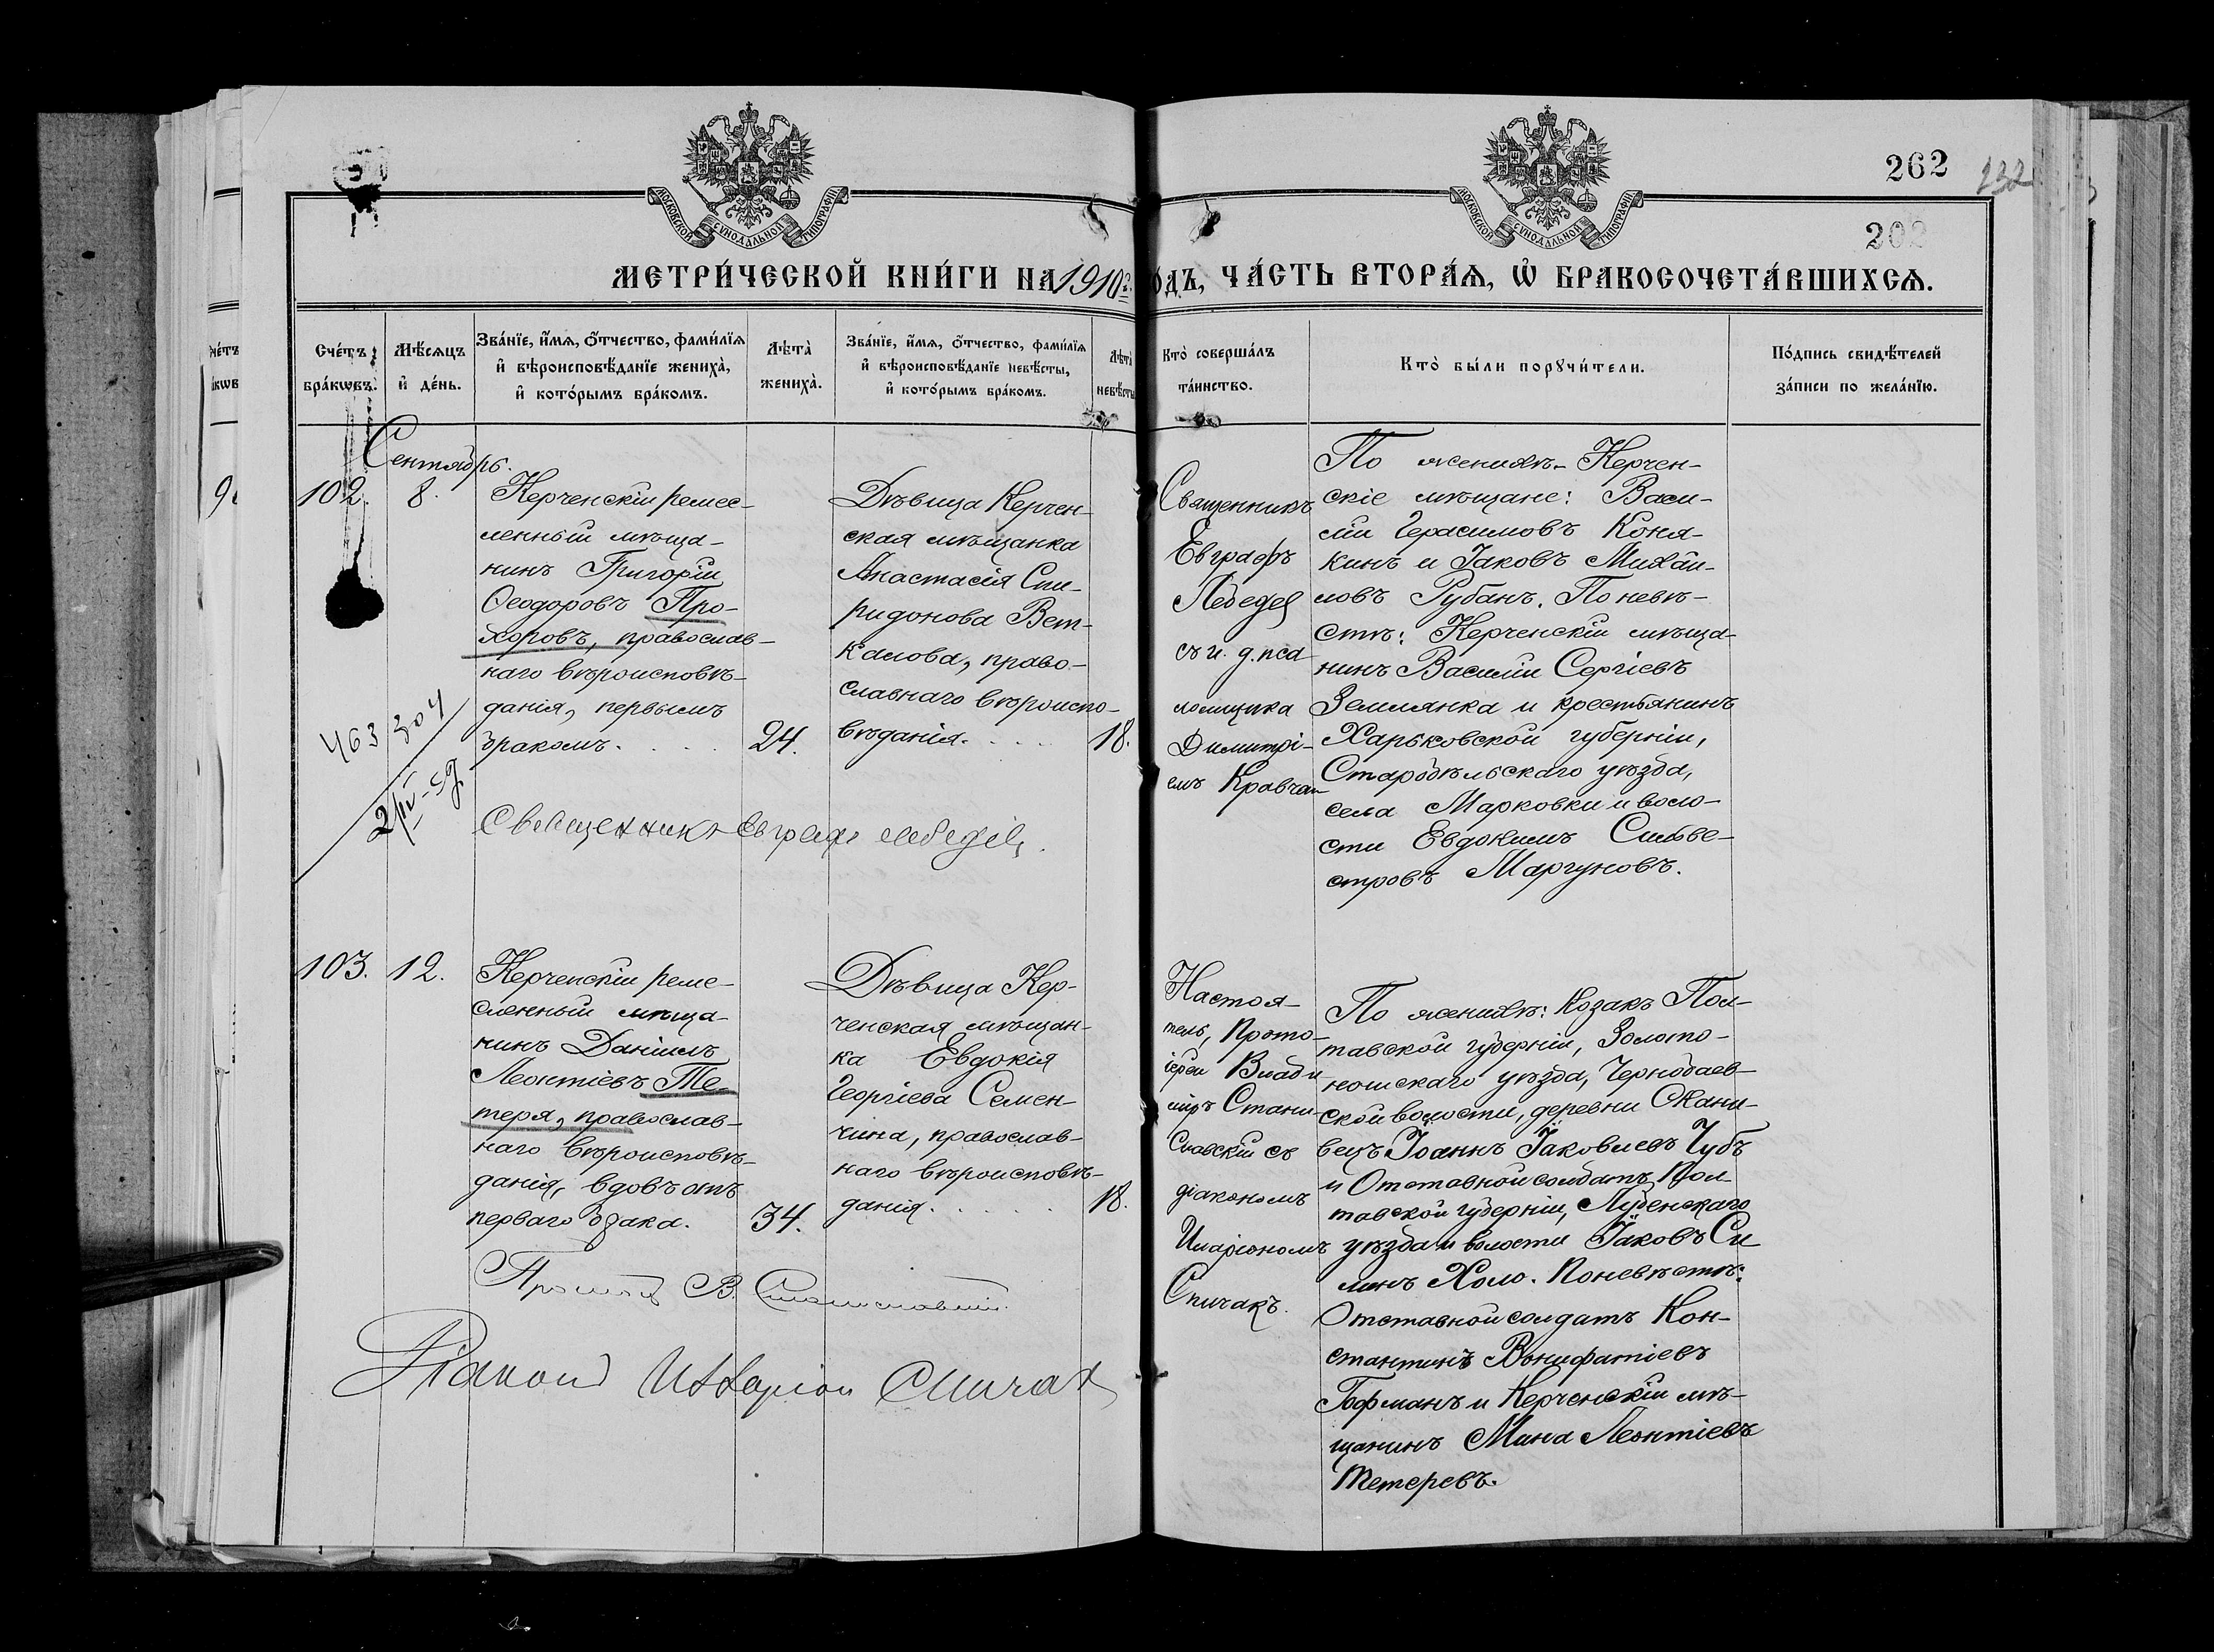 МОСКОВСКОЙ СѴНОДАЛЬНОЙ ТИПОГРАФІИ
МОСКОВСКОЙ СѴНОДАЛЬНОЙ ТИПОГРАФІИ
262
232
202
МЕТРИ́ЧЕСКОЙ КНИ́ГИ НА 1910 г. ГОДЪ, ЧА́СТЬ ВТОРА́Ѧ, Ѡ҆ БРАКОСОЧЕТА́ВШИХСѦ.
Сче́тъ бра́кѡвъ.
Мѣ́сѧцъ и҆ де́нь.
Зва́нїе, и҆́мѧ, ѻ҆́тчество, фами́лїѧ и҆ вѣроисповѣ́данїе жениха̀, и҆ кото́рымъ бра́комъ.
Лѣта̀ жениха̀.
Зва́нїе, и҆́мѧ, ѻ҆́тчество, фами́лїѧ и҆ вѣроисповѣ́данїе невѣ́сты, и҆ кото́рымъ бра́комъ.
Лѣта̀ невѣ́сты
Кто̀ соверша́лъ та́инство.
Кто̀ бы́ли порꙋчи́тели.
По́дпись свидѣ́телей за́писи по жела́нїю.
Сентябрь.
102.
8.
Керченскій ремес-
ленный мѣща-
нинъ Григорій
Ѳеодоровъ Про-
хоровъ, православ-
наго вѣроисповѣ-
данія, первымъ
бракомъ.
24.
Дѣвица Керчен-
ская мѣщанка
Анастасія Спи-
ридонова Вет-
калова, право-
славнаго вѣроиспо-
вѣданія.
18.
Священникъ
Евграфъ
Лебедев
съ и. д. пса
ломщика
Димитрі-
емъ Кравчан
По женихѣ- Керчен-
скіе мѣщане: Васи-
лій Герасимовъ Коня-
кинъ и Іаковъ Михай-
ловъ Рубанъ. По невѣ-
стѣ: Керченскій мѣща-
нинъ Василій Сергіевъ
Землянка и крестьянинъ
Харьковской губерніи,
Старобѣльскаго уѣзда,
села Марковки и воло-
сти Евдокимъ Сильве-
стровъ Маргуновъ.
463 304
2/IV-59
Священникъ Евграфъ Лебедевъ.
103.
12.
Керченскій реме-
сленный мѣща-
нинъ Даніилъ
Леонтіевъ Те-
теря, православ-
наго вѣроисповѣ-
данія, вдовъ отъ
перваго брака.
34.
Дѣвица Кер-
ченская мѣщан-
ка Евдокія
Георгіева Семен-
чина, православ-
наго вѣроисповѣ-
данія.
18.
Настоя-
тель, Прото-
іерей Влади-
міръ Стани-
славскій съ
діакономъ
Иларіономъ
Спичакъ.
По женихѣ: Козакъ Пол-
тавской губерніи, Золото-
ношскаго уѣзда, Чернобаев-
ской волости, деревни Скани-
вецъ Іоаннъ Іаковлевъ Чубъ
и Отставной солдатъ Пол
тавской губерніи, Лубенскаго
уѣзда и волости Іаковъ Си
линъ Холо. По невѣстѣ:
Отставной солдатъ Кон-
стантинъ Вонифатіевъ
Гофманъ и Керченскій мѣ-
щанинъ Мина Леонтіевъ
Тетеревъ.
В. Станиславскій.
Діаконъ Илларіон Спичак